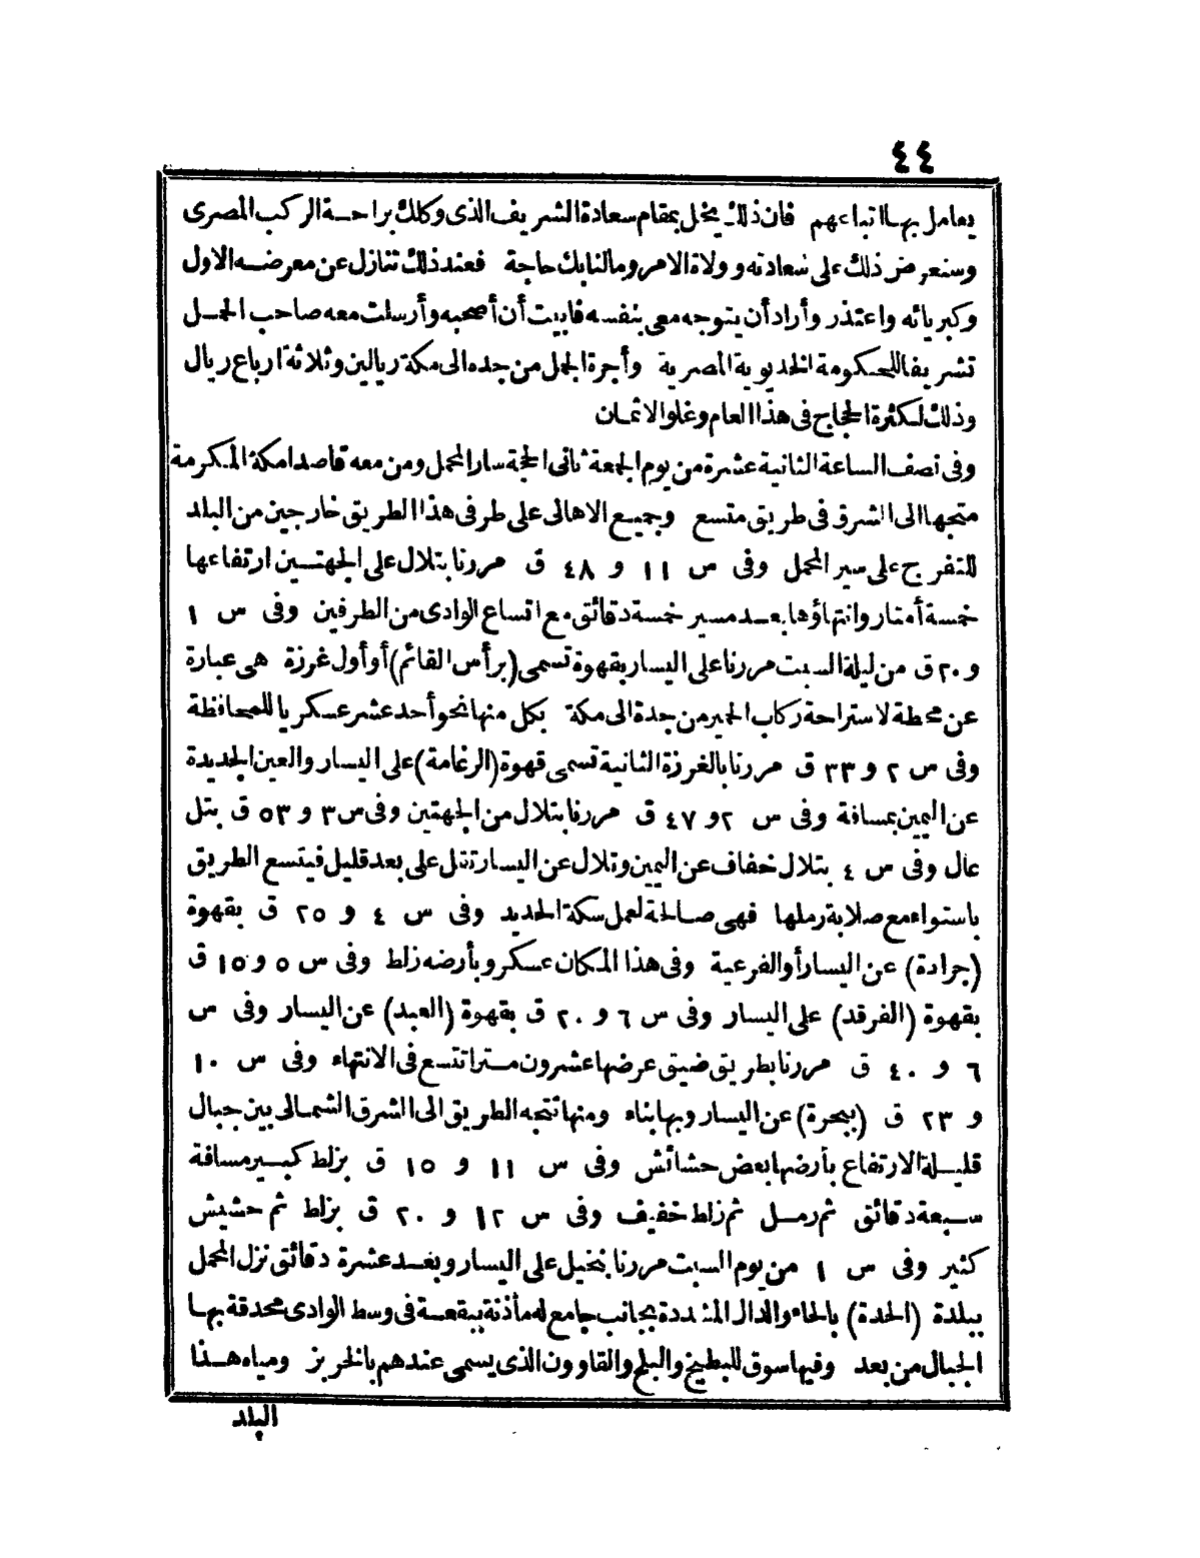 ٤٤
يعامل بها اتباعهم فان ذلك يخل بمقام سعادة الشريف الذى وكلك براحة الركب المصرى
وسنعرض ذلك على سعادته وولاة الامر ومالنا بك حاجة فعند ذلك تنازل عن معرضه الاول
وكبريائه واعتذر وأراد أن يتوجه معى بنفسه فابيت أن أصحبه وأرسلت معه صاحب الجمل
تشريفا للحكومة الخديوية المصرية وأجرة الجمل من جده الى مكة ريالين وثلاثة ارباع ريال
وذلك لكثرة الحجاج فى هذا العام وغلو الاثمان
وفى نصف الساعة الثانية عشرة من يوم الجمعة ثانى الحجة سار المحمل ومن معه قاصدا مكة المكرمة
متجها الى الشرق فى طريق متسع وجميع الاهالى على طرفى هذا الطريق خارجين من البلد
للتفرج على سير المحمل وفى س ١١ و ٤٨ ق مررنا بتلال على الجهتين ارتفاعها
خمسة أمتار وانتهاؤها بعد مسير خمسة دقائق مع اتساع الوادى من الطرفين وفى س ١
و ٢٠ ق من ليلة السبت مررنا على اليسار بقهوة تسمى (برأس القائم) أو أول غرزة هى عبارة
عن محطة لاستراحة ركاب الحمير من جدة الى مكة بكل منها نحو أحد عشر عسكريا للمحافظة
وفى س ٢ و ٣٣ ق مررنا بالغرزة الثانية تسمى قهوة (الرغامة) على اليسار والعين الجديدة
عن اليمين بمسافة وفى س ٢ و ٤٧ ق مررنا بتلال من الجهتين وفى س ٣ و ٥٣ ق بتل
عال وفى س ٤ بتلال خفاف عن اليمين وتلال عن اليسار تتل على بعد قليل فيتسع الطريق
باستواء مع صلابة رملها فهى صالحة لعمل سكة الحديد وفى س ٤ و ٢٥ ق بقهوة
(جرادة) عن اليسار أو الفرعية وفى هذا المكان عسكر وبأرضه زلط وفى س ٥ و ١٥ ق
بقهوة (الفرقد) على اليسار وفى س ٦ و ٢٠ ق بقهوة (العبد) عن اليسار وفى س
٦ و ٤٠ ق مررنا بطريق ضيق عرضها عشرون مترا تتسع فى الانتهاء وفى س ١٠
و ٢٣ ق (ببحرة) عن اليسار وبها بناء ومنها تتجه الطريق الى الشرق الشمالى بين جبال
قليلة الارتفاع بأرضها بعض حشائش وفى س ١١ و ١٥ ق بزلط كبير مسافة
سبعة دقائق ثم رمل ثم زلط خفيف وفى س ١٢ و ٢٠ ق بزلط ثم حشيش
كثير وفى س ١ من يوم السبت مررنا بنخيل على اليسار وبعد عشرة دقائق نزل المحمل
ببلدة (الحدة) بالحاء والدال المشددة بجانب جامع له مأذنة ببقعة فى وسط الوادى محدقة بها
الجبال من بعد وفيها سوق للبطيخ والبلح والقاوون الذى يسمى عندهم بالخربز ومياه هذا
البلد